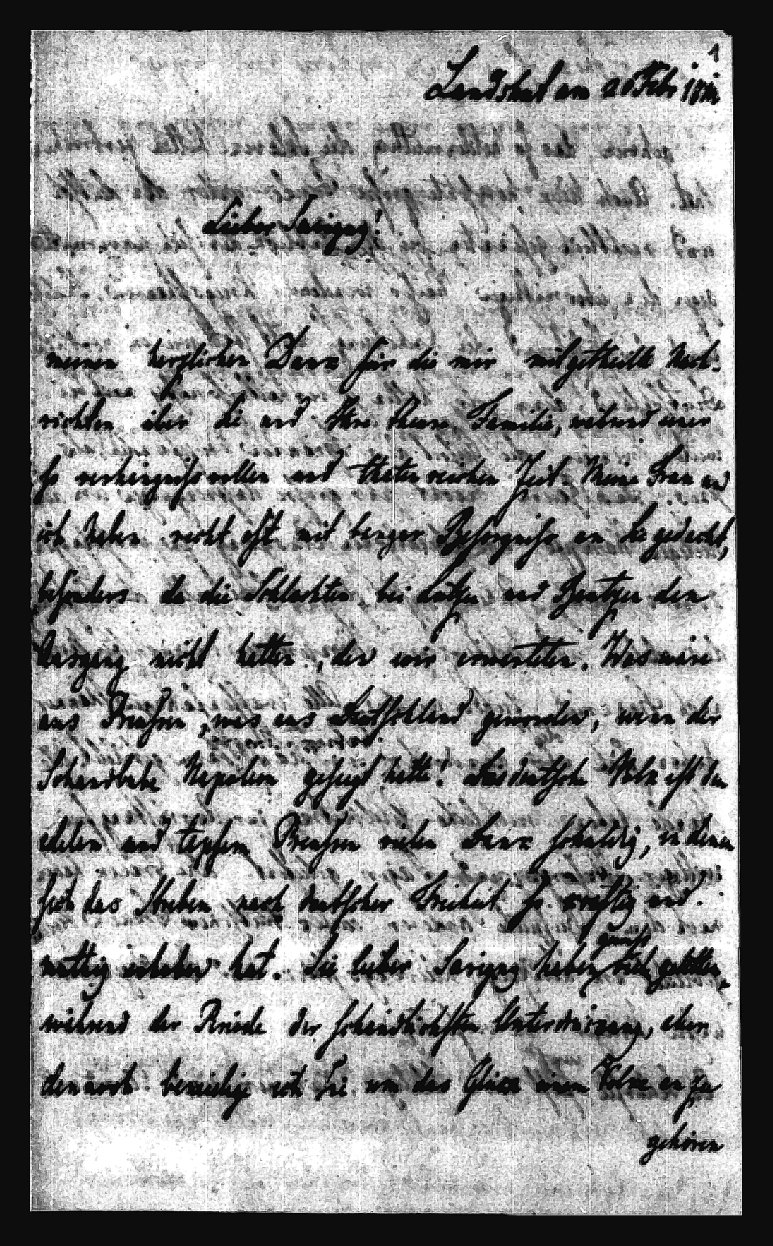 1
Landshut am 20 Feb
Lieber Savigny!
meinen herzlichen Dank für die mir mitgetheilte Nach-
richten über Sie und Ihre theure Familie, während einer
so verhängnißvollen und thatenreichen Zeit. Meine Frau und
ich haben recht oft mit banger Besorgniß an Sie gedacht,
besonders da die Schlachten bei Lützen und Bautzen den
Ausgang nicht hatten, den wir erwarteten. Was wäre
aus Preußen, was aus Deutschland geworden, wenn der
Schändliche Napoleon gesiegt hätte! Das deutsche Volk ist den
edelen und tapfern Preußen vielen Dank schuldig, in denen
sich das Streben nach deutscher Freiheit so kräftig und
muthig erhoben hat. Sie lieber Savigny haben gewiß viel gelitten,
während der Periode der schändlichsten Unterdrückung, aber
dennoch beneidige ich Sie um das Glück einem Volke an zu
gehören